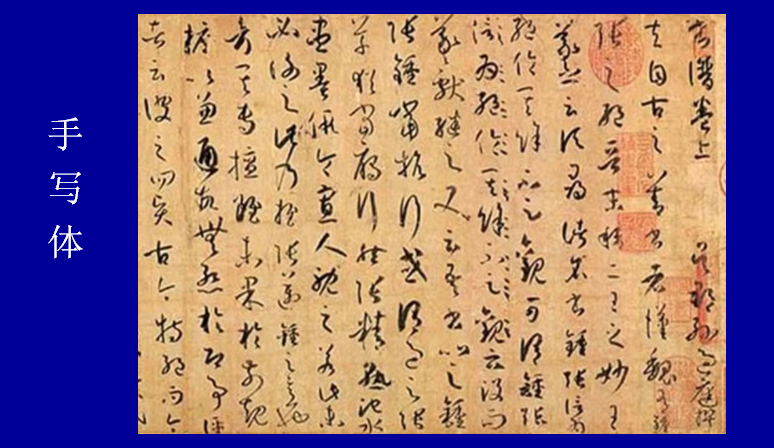 手写体
書譜卷上 吳郡孫過庭撰
夫自古之善書者漢魏有鍾
張之絕晉末稱二王之妙王
羲之云頃尋諸名書鍾張信為
絕倫其餘不足觀可謂鍾張
信為絕倫其餘不足觀云沒而
羲獻繼之又云吾書比之鍾
張鍾當抗行或謂過之張
草猶當雁行然張精熟池水
盡墨假令寡人耽之若此未
必謝之此乃推張邁鍾之意
也考其專擅雖未果於前規
摭以兼通故無慚於即事評
者云彼之四賢古今特絕而今